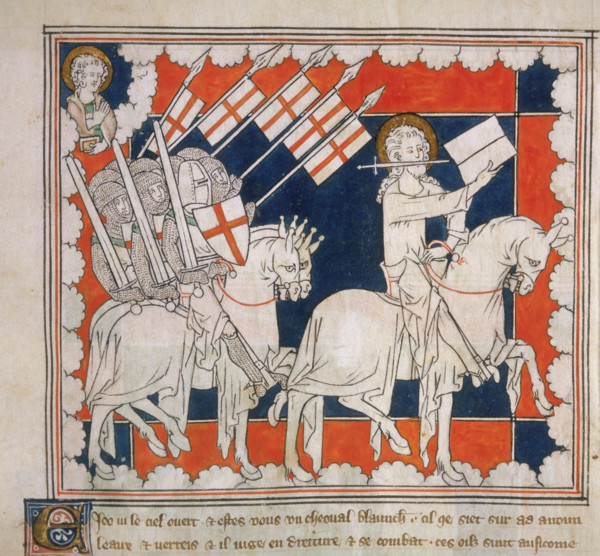 E Joo ui le ciel ouert · & estes vous vn cheoual blaunch · cil qe siet sur ad anoun
leaux & verreis & il iuge en dreiture & se combat · ces oils sunt ausicome